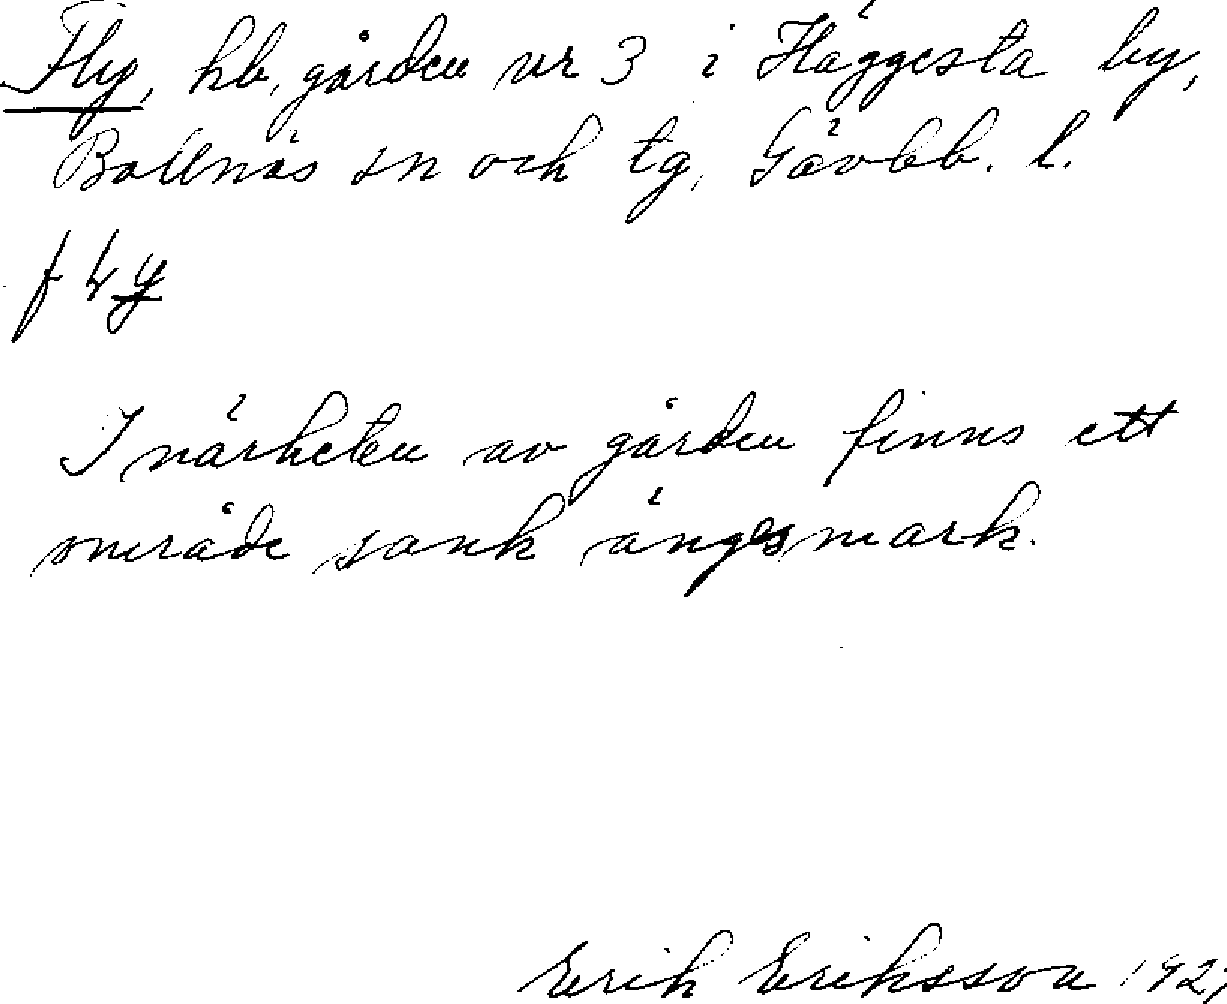 Fly, hb, gården nr 3 i Häggesta by,
Bollnäs sn och tg, Gävleb. l.
I närheten av gården finns ett
område sank ängsmark.
Erik Eriksson